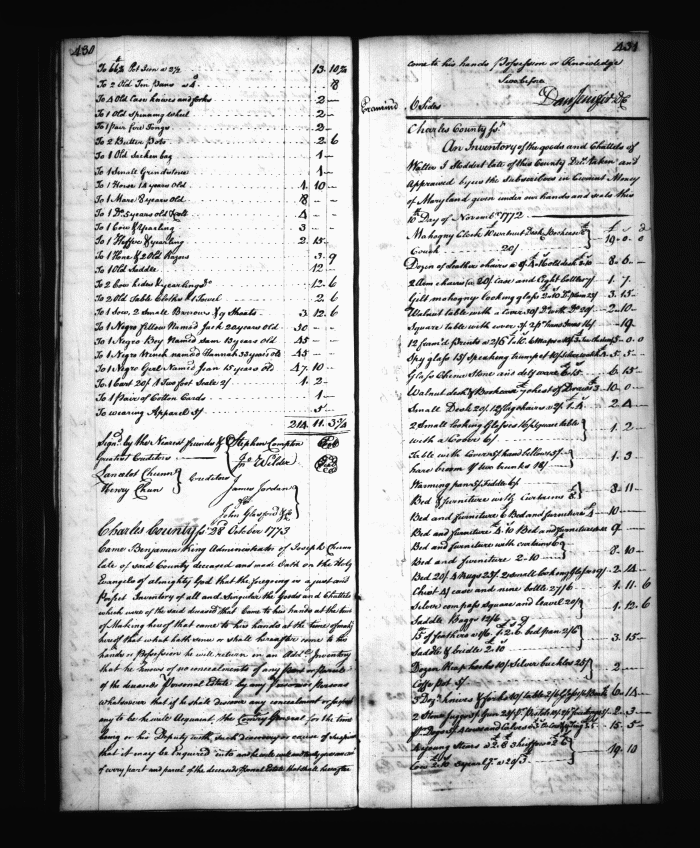 430
To 66 lb Pot Iron a 2½ 13. 10¾
To 2 Old Tin Pans a 4d 8
To 4 Old Case knives and forks 2
To 1 Old Spinning wheel 2
To 1 Pair fire Tongs 2
To 2 Butter Pots 2 6
To 1 Old Sachen bag 1
To 1 Small Grindstone 1
To 1 Horse 12 years Old 4. 10
To 1 Mare 8 years Old 8
To 1 Do. 5 years old & Colt 4
To 1 Cow & Yearling 3
To 1 Heiffer & yearling 2. 15
To 1 Hone & 2 Old Razors 3. 9
To 1 Old Saddle 12
To 2 Cow hides & yearling Do. 12. 6
To 2 Old Table Cloths & 1 Towel 2 6
To 1 Sow, 2 Small Barrows & 9 Shoats 3 12. 6
To 1 Negro fellow Named Jack 20 years old 50
To 1 Negro Boy Named Sam 13 years Old 45
To 1 Negro Wench named Hannah 33 years old 45
To 1 Negro Girl Named Jean 15 years old 47. 10
To 1 Cart 20/ & Two foot Scale 2/ 1. 2
To 1 Pair of Cotton Cards 1
To wearing Apparel 5/ 5
214. 11. 3¾
Sign'd by the Nearest friends & Stephen Compton
Greatest Creditors Jno. Wilder
Lancelot Chunn
Henry Chun Creditors
James Jordan
for
John Glassford & Co
Charles County Ss. 28 October 1773
Came Benjamin King Administrator of Joseph Chunn
late of said County deceased and made Oath on the Holy
Evangels of almighty God that the foregoing is a just and
Perfect Inventory of all and Singular the Goods and Chattels
which were of the said deceased that Came to his hands at the time
of Making hereof that come to his hands at the time of making
hereof that what hath since or shall hereafter come to his
hands or Possession he will return in an Addl. Inventory
that he knows of no concealments of any part or parcel
of the deceaseds Personal Estate by any Person or Persons
whatsoever that if he shall discover any concealment or suspect
any to be he will Acquaint the Comry General for the time
being or his Deputy with such discovery or cause of suspicion
that it may be Enquired into and he will well and truly give an acct
of every part and parcel of the deceaseds Personal Estate that shall hereafter
431
come to his hands Possession or Knowledge
Sworn before
Examined Dan Jenifer &c
Exhides
Charles County Ss.
An Inventory of the goods and Chattels of
Walter J Stoddert late of this County Decd. taken and
Appraised by us the Subscribers in Current Money
of Maryland given under our hands and seals this
10th Day of November 1772
£ s d
Mahogny Clock 10 walnut Desk Bookcase 8
Couch 20/ 19. 0. 0
Dozen of Leather chairs 8. 6
2 Arm chairs Case and Eight bottles 1. 7
Gilt mahogny looking glass 3. 15
Walnut table with a Cover 2. 10
Square table with cover 19
5. 0. 0
Spy glass 15/ Speaking trumpet 5. 5
Glass China Stone and delf ware 6. 15
Walnut desk & Bookcase chest of Drawers 10. 0
Small Desk 20/ 12 flag chairs 2. 4
2 Small Looking Glasses 10/ square table
with a Cover 6/ 1. 2
Table with Cover
hare broom & two trunks 18/ 1. 3
Warming pan
Bed & furniture with Curtains 8 3. 11
Bed and furniture 6 Bed and furniture 4 10
Bed and furniture 4. 10 Bed and furniture 9
Bed and furniture with curtains 6
Bed and furniture 2-10 8. 10
Bed 20/ 4 Rugs 23/ 2 small looking glasses 2. 14
Chest 4/ case and nine bottle 27/6 1. 11. 6
Silver compass square and leavel 20/
Saddle Baggs 12/6 1. 12. 6
15 lb feathers 1. 2. 6 bed pan 2/6
Saddle & bridle 2. 10 3. 15
Dozen Reap hooks 10/ Silver buckles 25/
Coffe pot 5/ 2
3 Doz. knives & forks 6. 14
2. 3
15. 5
4 young Stears a 2. 8 3 heiffers a 2. 5
Cow 19. 10